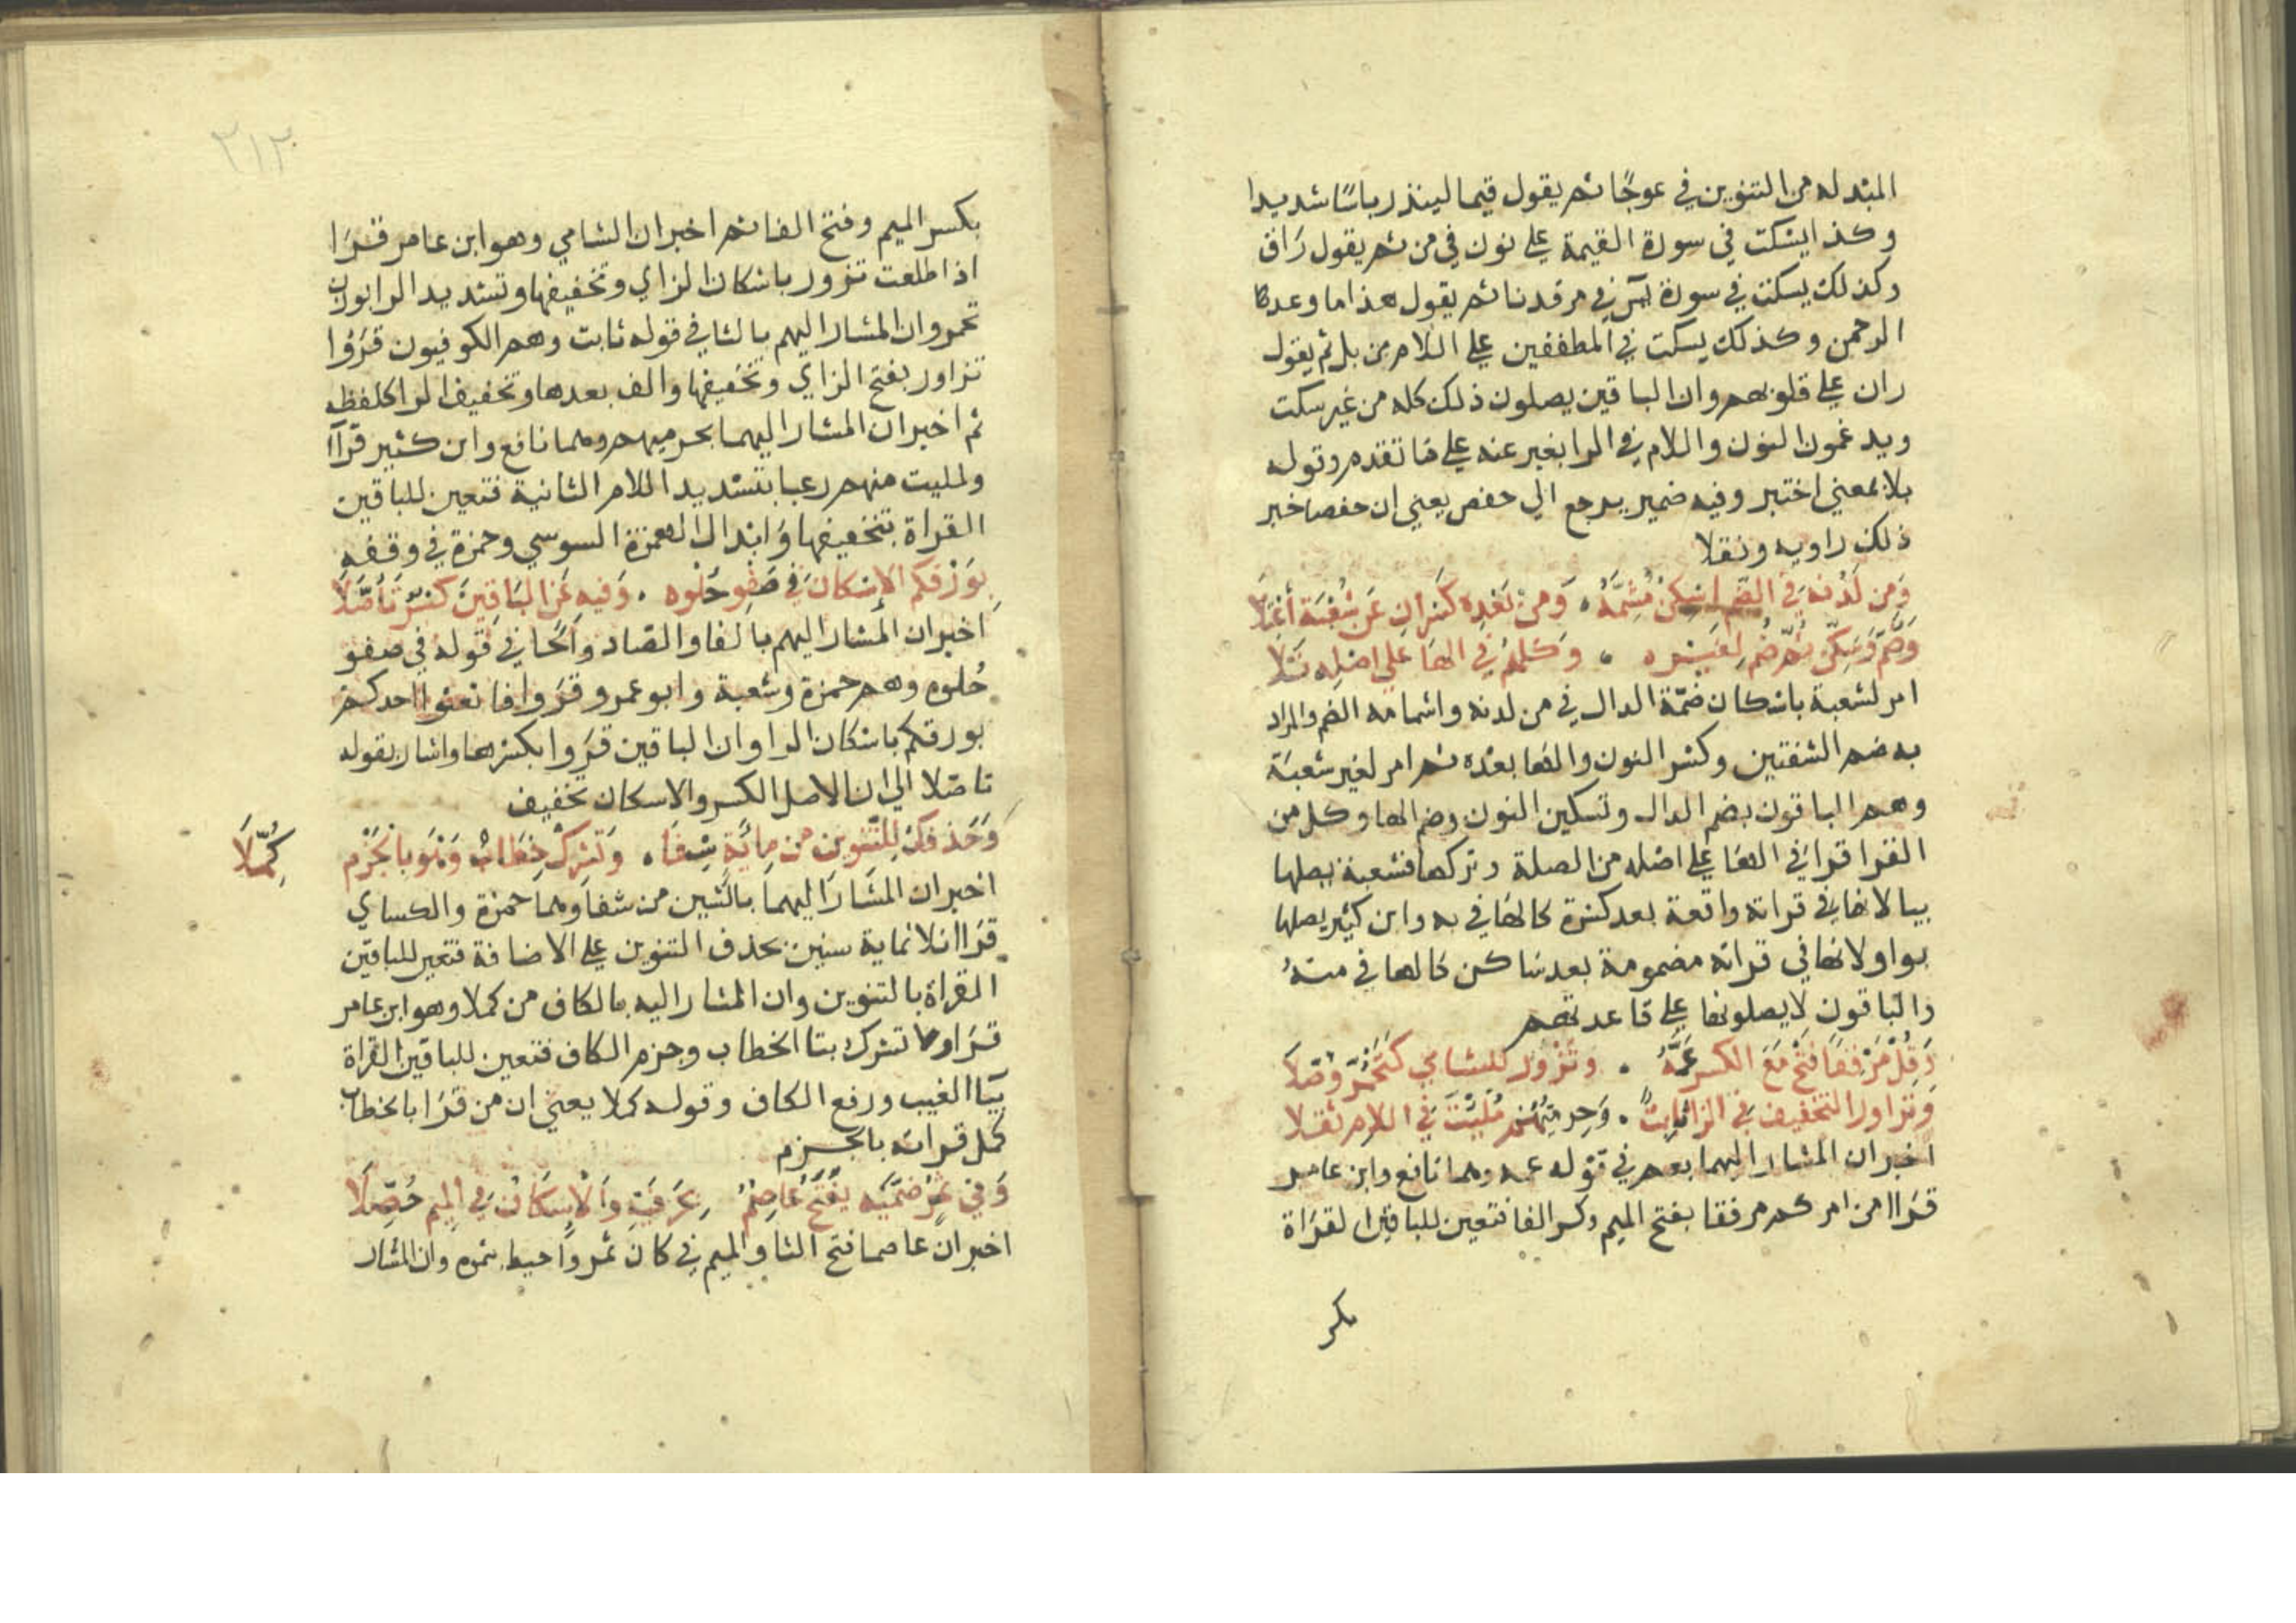 المبدله من التنوين في عوجًا ثم يقول قيما لينذر باسًا شديدا
وكذا يسكت في سورة القيمة على نون في من ثم يقول رَاق
وكذلك يسكت في سورة يس في مرقدنا ثم يقول هذا ما وعد
الرحمن وكذلك يسكت في المطففين على اللام من بل ثم يقول
ران على قلوبهم وان الباقين يصلون ذلك كله من غير سكت
ويدغمون النون واللام في الرا بغير عنه على ما تقدم وقوله
بلا بمعني اختبر وفيه ضمير يرجع الي حفص يعني ان حفصا خبر
ذلك راويه ونقلا
وَمِن لَدْنه في الضم اسكن مُشِمَّهُ . وَمِن بَعْدِه كسْران عَن شُعْبَة أعْتَلَا
وَضُمَّ وَسَكِّن ثُمَّ ضُم لغَيْره . وَكلهُم في الهَا على اصْله تَلا
امر لشعبة باسْكان ضمّة الدال في من لدنه واشمامه الضم والمراد
به ضم الشفتين وكسْر النون والهَا بعْده ثم امر لغير شعبَة
وهم الباقون بضم الدال وتسكين النون وضم الها وكل من
القرا قرا في الهَا على اصْله من الصلة وتركها فشعبة يصلها
بيا لانها في قراته واقعة بعد كسْرة كالهَا في به وابن كثير يصلها
بواو لانها في قراته مضمومة بعد سَاكن كالها في منهُ
والبَاقون لا يصلونها على قاعدتهم
وَقُلْ مَرْفِقًا فَتْحٌ مَعَ الكسر عَمَّهُ . وتَزْوَرُّ للشامي كتَحْمَرّ وُصّلَا
وَتزاور التخفيف في الزا ثَابِتٌ . وَحِرميّهُمْ مُلِّئْتَ في اللام ثقلا
اخبر ان المشار اليهما بعم في قوله عمه وهما نافع وابن عامر
قرَاا من امركم مرفقا بفتح الميم وكسر الفا فتعين للباقين القرَاة
بكسر
٢١٣
بكسر الميم وفتح الفا ثم اخبر ان الشامي وهو ابن عامر قرَا
اذا طلعت تزور باسْكان الزاي وتخفيفها وتشديد الرا بوزن
تحمر وان المشار اليهم بالثا في قوله ثابت وهم الكوفيون قرَؤا
تزاور بفتح الزاي وتخفيفها والف بعدها وتخفيف الرا كلفظه
ثم اخبر ان المشار اليهما بحرميهم وهما نافع وابن كثير قرَاا
ولمليت منهم رعبا بتشديد اللام الثانية فتعين للباقين
القراة بتخفيفها وَابْدال الهمزة السوسي وحمزة في وقفه
بِوَرْقكُم الإسْكان في صَفْوِ حُلْوه . وَفيه عَن البَاقِينَ كسْرٌ تَأصَّلَا
اخبر ان المشار اليهم بالفا والصَاد والحَا في قوله في صفو
حُلوه وهم حمزة وشعبة وابو عمرو قرَوا فابعثوا احدكم
بورقكم باسْكان الرا وان الباقين قرَوا بكسْرها واشار بقوله
تاصّلا الي ان الاصل الكسر والاسكان تخفيف
وَحَذفكَ لِلتّنوين من مِائَةٍ شَفَا . وَتُشْرِكْ خِطَابٌ وَهْوَ بالجَزْم
كُمِّلَا
اخبر ان المشَارَ اليهما بالشين من شفا وهما حمزة والكساي
قرَاا ثلاثماية سنين بحذف التنوين على الاضافة فتعين للباقين
القراة بالتنوين وان المشار اليه بالكاف من كملا وهو ابن عامر
قرَا ولا تشرك بتا الخطاب وجزم الكاف فتعين للباقين القراة
بيَا الغيب ورفع الكاف وقوله كملا يعني ان من قرَا بالخطاب
كمل قراته بالجزم
وَفي ثَمَرٍ ضَمَّيْه يَفْتَحُ عَاصِمٌ . بِحَرْفَيْهِ وَالْإسْكَانُ في الميم حُصِّلَا
اخبر ان عاصما فتح الثا والميم في كان له ثمر واحيط بثمره وان المشار